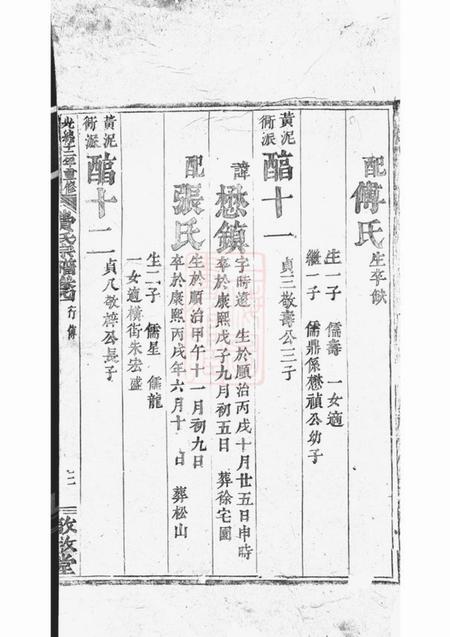 配傅氏生卒缺
生一子 儒壽 一女適
繼一子 儒鼎係懋禎公幼子
黃泥
衕派
酯十一 貞三敬壽公三子
諱懋鎮字時遠 生於順治丙戌十月廿五日申時
卒於康熙戊子九月初五日 葬徐宅園
配張氏生於順治甲午十一月初九日
卒於康熙丙戌年六月十 日 葬松山
生二子 儒星 儒龍
一女適橫街朱宏盛
黃泥
衕派
酯十二 貞八敬梓公長子
重修
氏宗譜
行傳
敘堂